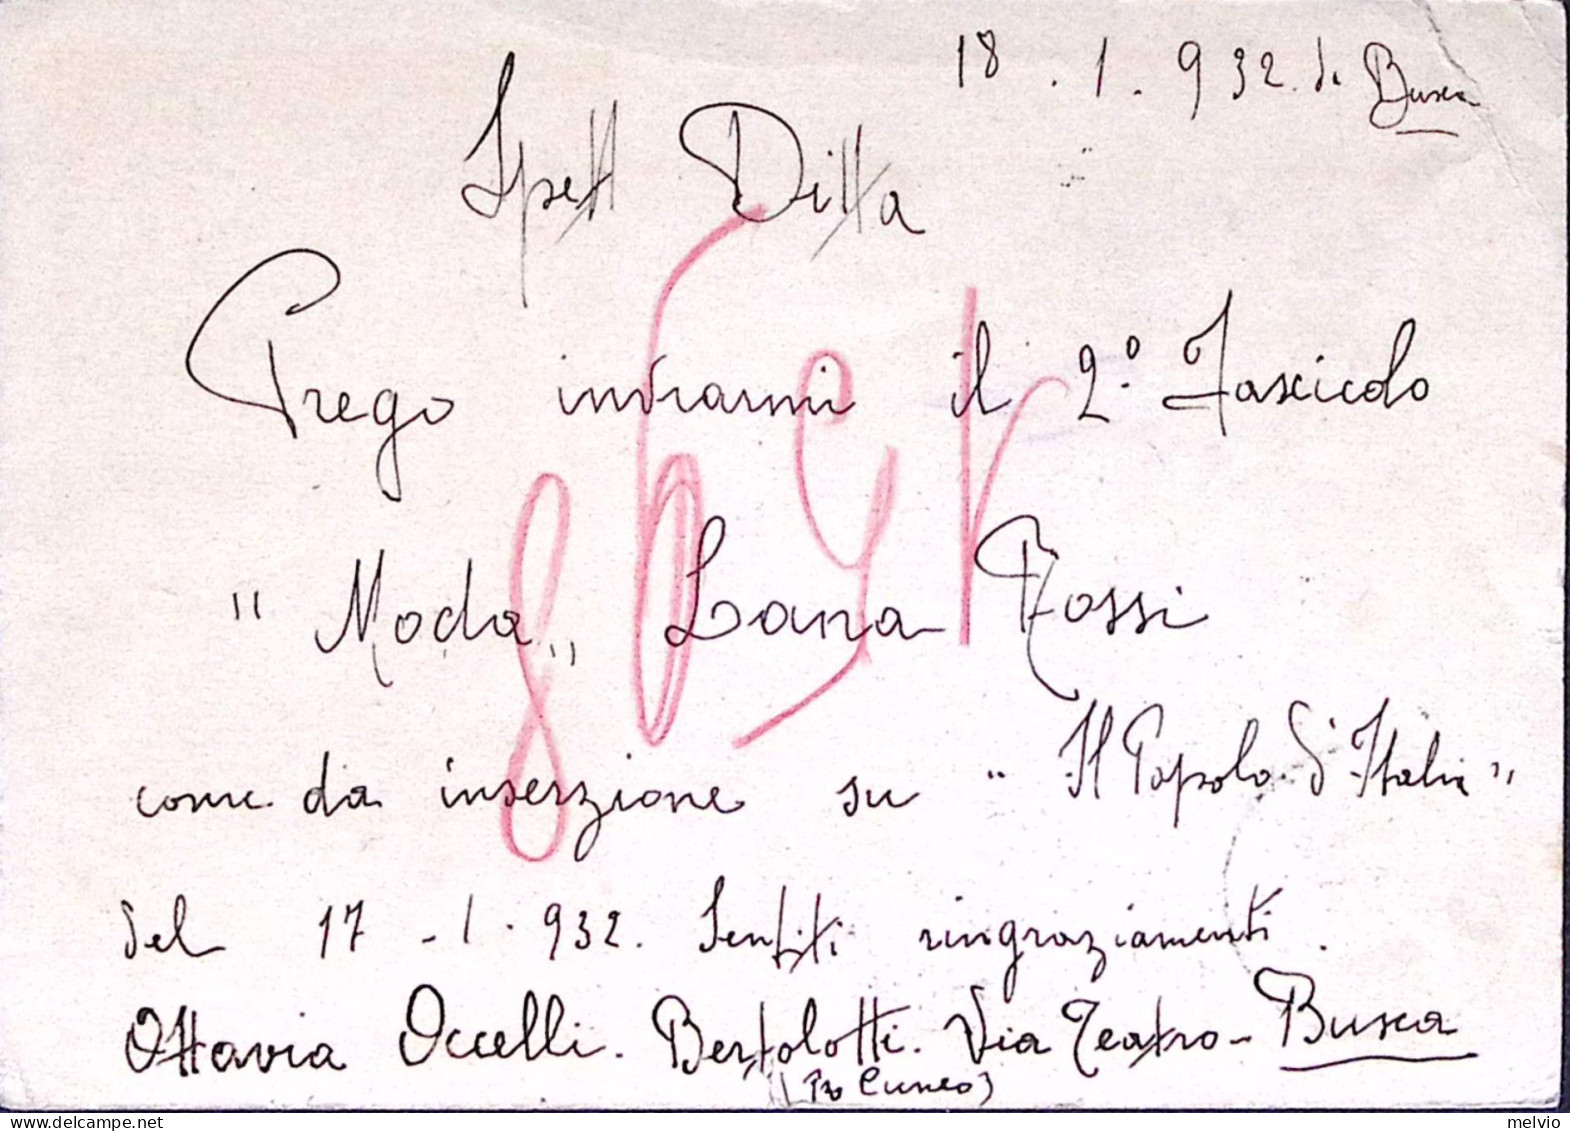 18 . 1 . 932. da Busca
Spett Ditta
Prego inviarmi il 2.° Fascicolo
" Moda „ Lana Rossi
come da inserzione su " Il Popolo d'Italia "
del 17 - 1 . 932. Sentiti ringraziamenti.
Ottavia Occelli. Bertolotti. Via Teatro - Busca
(Pro Cuneo)
melvio